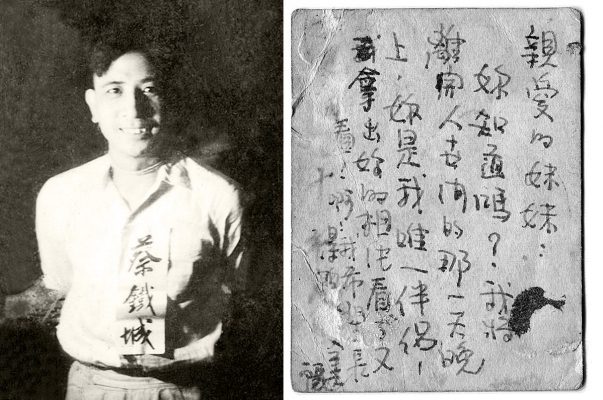 蔡鐵城
親愛的妹妹：
妳知道嗎？我將
離開人世間的那一天晚
上，妳是我唯一伴侶，
我拿出妳的相片看了又
看！啊！我希